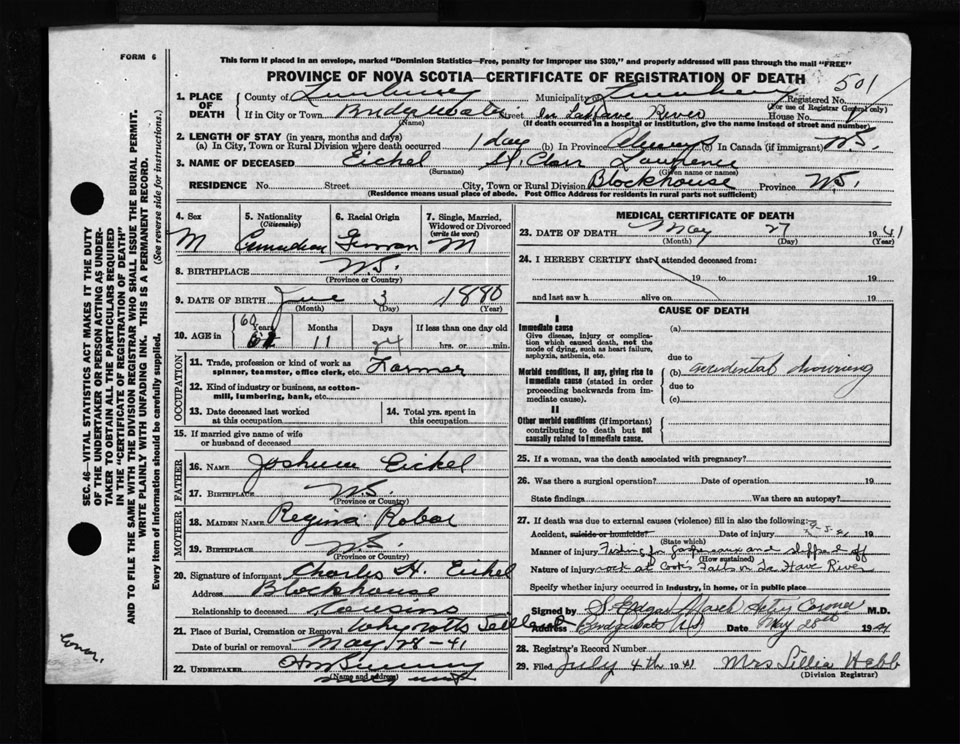 FORM 6
This form if placed in an envelope, marked "Dominion Statistics—Free, penalty for improper use $300," and properly addressed will pass through the mail "FREE"
PROVINCE OF NOVA SCOTIA—CERTIFICATE OF REGISTRATION OF DEATH
501
1. PLACE OF DEATH
County of Lunenburg Municipality of Lunenburg Registered No.
(For use of Registrar General only)
If in City or Town Bridgewater Street In LaHave River House No.
(Name) (If death occurred in a hospital or institution, give the name instead of street and number)
2. LENGTH OF STAY (in years, months and days)
(a) In City, Town or Rural Division where death occurred 1 day (b) In Province Always (c) In Canada (if immigrant) N.S.
3. NAME OF DECEASED Eickel St. Clair Lawrence
(Surname) (Given name or names)
RESIDENCE No. Street City, Town or Rural Division Blockhouse Province N.S.
(Residence means usual place of abode. Post Office Address for residents in rural parts not sufficient)
4. Sex M
5. Nationality (Citizenship) Canadian
6. Racial Origin German
7. Single, Married, Widowed or Divorced (write the word) M
8. BIRTHPLACE N.S.
(Province or Country)
9. DATE OF BIRTH June 3 1880
(Month) (Day) (Year)
10. AGE in 60 Years 11 Months 24 Days If less than one day old
hrs. or min.
OCCUPATION
11. Trade, profession or kind of work as spinner, teamster, office clerk, etc. Farmer
12. Kind of industry or business, as cotton-mill, lumbering, bank, etc.
13. Date deceased last worked at this occupation
14. Total yrs. spent in this occupation
15. If married give name of wife or husband of deceased
FATHER
16. NAME Joshua Eickel
17. BIRTHPLACE N.S.
(Province or Country)
MOTHER
18. MAIDEN NAME Regina Robar
19. BIRTHPLACE N.S.
(Province or Country)
20. Signature of informant Charles H. Eickel
Address Blockhouse
Relationship to deceased Cousins
21. Place of Burial, Cremation or Removal Whynotts Settlement
Date of burial or removal May 28-41
22. UNDERTAKER
(Name and address)
MEDICAL CERTIFICATE OF DEATH
23. DATE OF DEATH May 27 1941
(Month) (Day) (Year)
24. I HEREBY CERTIFY that I attended deceased from:
19 to 19
and last saw h alive on 19
CAUSE OF DEATH
I
Immediate cause (a)
Give disease, injury or complication which caused death, not the mode of dying, such as heart failure, asphyxia, asthenia, etc.
due to
Morbid conditions, if any, giving rise to immediate cause (stated in order proceeding backwards from immediate cause).
(b) accidental drowning
due to
(c)
II
Other morbid conditions (if important) contributing to death but not causally related to immediate cause.
25. If a woman, was the death associated with pregnancy?
26. Was there a surgical operation? Date of operation 19
State findings Was there an autopsy?
27. If death was due to external causes (violence) fill in also the following:
Accident, suicide or homicide? Date of injury 19
(State which)
Manner of injury Fishing for gaspereaux and slipped off
(How sustained)
Nature of injury rock at Cook's Falls on La Have River
Specify whether injury occurred in Industry, in home, or in public place
Signed by S. Edgar March Coroner M.D.
Address Bridgewater NS Date May 28th 1941
28. Registrar's Record Number
29. Filed July 4th 1941 Mrs Lillia Hebb
(Division Registrar)
SEC. 46—VITAL STATISTICS ACT MAKES IT THE DUTY
OF THE UNDERTAKER OR PERSON ACTING AS UNDER-
TAKER TO OBTAIN ALL THE PARTICULARS REQUIRED
IN THE "CERTIFICATE OF REGISTRATION OF DEATH"
AND TO FILE THE SAME WITH THE DIVISION REGISTRAR WHO SHALL ISSUE THE BURIAL PERMIT.
WRITE PLAINLY WITH UNFADING INK. THIS IS A PERMANENT RECORD.
Every item of information should be carefully supplied. (See reverse side for instructions.)